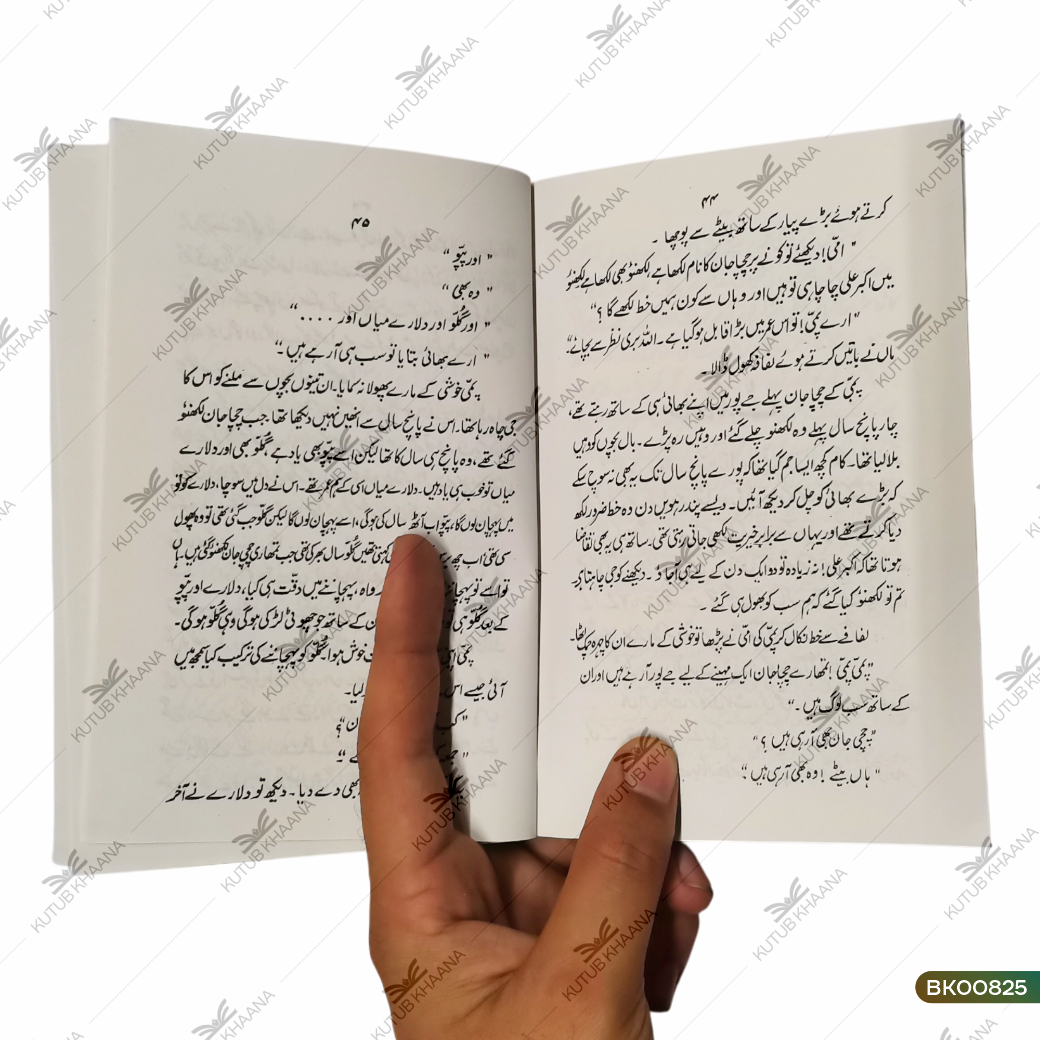 ۴۴
کرتے ہوئے بڑے پیار کے ساتھ بیٹے سے پوچھا ۔
" امّی! دیکھئے تو کونے پر چچا جان کا نام لکھا ہے لکھنؤ بھی لکھا ہے لکھنؤ
میں اکبر علی چاچا ہی تو ہیں اور وہاں سے کون ہمیں خط لکھے گا ؟"
" ارے پمّی! تو اس عمر میں بڑا قابل ہو گیا ہے ۔ اللہ بری نظر سے بچائے "
ماں نے باتیں کرتے ہوئے لفافہ کھول ڈالا ۔
پمّی کے چچا جان پہلے جے پور میں اپنے بھائی ہی کے ساتھ رہتے تھے،
چار پانچ سال پہلے وہ لکھنؤ چلے گئے اور وہیں رہ پڑے ۔ بال بچوں کو وہیں
بلا لیا تھا ۔ کام کچھ ایسا جم گیا تھا کہ پورے پانچ سال تک یہ بھی نہ سوچ سکے
کہ بڑے بھائی کو چل کر دیکھ آئیں ۔ ویسے پندرہویں دن وہ خط ضرور لکھ
دیا کرتے تھے اور یہاں سے برابر خیریت لکھی جاتی رہتی تھی ۔ ساتھ ہی یہ بھی تقاضا
ہوتا تھا کہ اکبر علی! نہ زیادہ تو دو ایک دن کے لیے ہی آ جاؤ ۔ دیکھنے کو جی چاہتا ہے
تم تو لکھنؤ کیا گئے کہ ہم سب کو بھول ہی گئے ۔
لفافے سے خط نکال کر پمّی کی امّی نے پڑھا تو خوشی کے مارے ان کا چہرہ چمک اٹھا ۔
" پمّی پمّی! تمھارے چچا جان ایک مہینے کے لیے جے پور آ رہے ہیں اور ان
کے ساتھ سب لوگ ہیں ۔"
" چچی جان بھی آ رہی ہیں ؟"
" ہاں بیٹے! وہ بھی آ رہی ہیں "
۴۵
" اور پپّو "
" وہ بھی "
" اور گلّو اور دلارے میاں اور ...."
" ارے بھائی بتایا تو سب ہی آ رہے ہیں ۔"
پمّی خوشی کے مارے پھولا نہ سمایا ۔ ان تینوں بچوں سے ملنے کو اس کا
جی چاہ رہا تھا ۔ اس نے پانچ سال سے انھیں نہیں دیکھا تھا ۔ جب چچا جان لکھنؤ
گئے تھے ، وہ پانچ ہی سال کا تھا لیکن اسے پپّو بھی یاد ہے ، گلّو بھی اور دلارے
میاں تو خوب ہی یاد ہیں ۔ دلارے میاں اسی کے ہم عمر تھے ۔ اس نے دل میں سوچا ، دلارے کو تو
میں پہچان لوں گا ، پپّو اب آٹھ سال کی ہو گی ، اسے پہچان لوں گا لیکن گلّو جب گئی تھی تو وہ پھول
سی تھی اب چھ کہتی تھیں گلّو سال بھر کی تھی جب تمھاری چچی جان لکھنؤ گئی ہیں ۔ ہاں
تو اسے تو پہچاننے واہ ، پہچاننے میں دقّت ہی کیا ، دلارے اور پپّو
کے بعد گلّو ہی تو ان کے ساتھ جو چھوٹی لڑکی ہو گی وہی گلّو ہو گی ۔
پمّی اپنی خوش ہوا گلّو کو پہچاننے کی ترکیب کیا سمجھ میں
آئی جیسے اس لیا ۔
" کب ن ؟"
" جمعہ ے "
بھی دے دیا ۔ دیکھ تو دلارے نے آخر
BK00825
KUTUB KHAANA